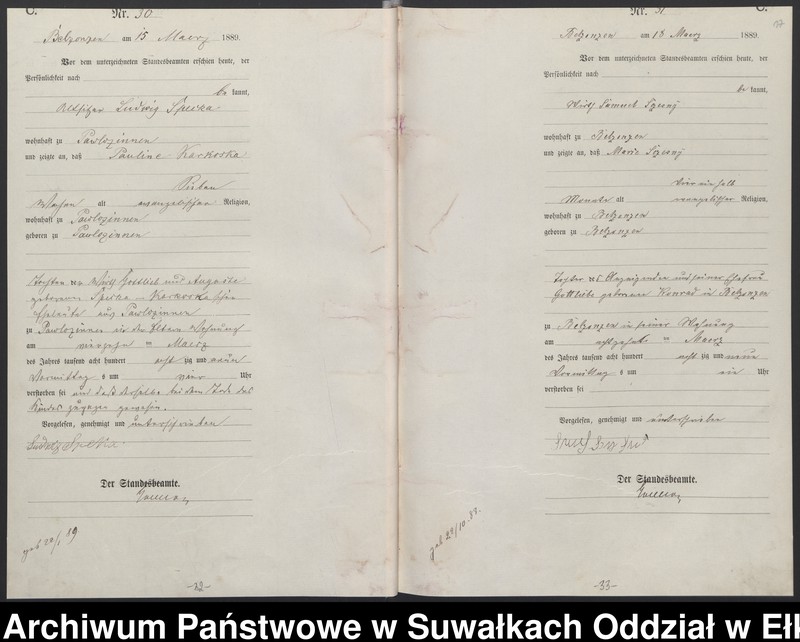 C.
Nr. 30
Belzonzen am 15 Maerz 1889.
Vor dem unterzeichneten Standesbeamten erschien heute, der
Persönlichkeit nach
be kannt,
Altsitzer Ludwig Specka
wohnhaft zu Pawlozinnen
und zeigte an, daß Pauline Karkoska
Sieben
Wochen alt evangelischer Religion,
wohnhaft zu Pawlozinnen
geboren zu Pawlozinnen
Tochter der Wirth Gottlieb und Auguste
geborenen
Eheleute aus Pawlozinnen
zu Pawlozinnen in der Eltern Wohnung
am vierzehn ten Maerz
des Jahres tausend acht hundert acht zig und neun
Vormittag s um vier Uhr
verstorben sei und daß derselbe bei dem Tode des
Kindes zugegen gewesen.
Vorgelesen, genehmigt und unterschrieben
Der Standesbeamte.
geb 20/1 89
-32-
Nr. 31
C.
Belzonzen am 18 Maerz 1889.
Vor dem unterzeichneten Standesbeamten erschien heute, der
Persönlichkeit nach
be kannt,
Wirth Samuel
wohnhaft zu Belzonzen
und zeigte an, daß Marie
vier ein halb
Monate alt evangelischer Religion,
wohnhaft zu Belzonzen
geboren zu Belzonzen
Tochter des Anzeigenden und seiner Ehefrau
Gottliebe geborenen Konrad in Belzonzen
zu Belzonzen in seiner Wohnung
am achtzehnten Maerz
des Jahres tausend acht hundert acht zig und neun
Vormittag s um ein Uhr
verstorben sei
Vorgelesen, genehmigt und unterschrieben
Der Standesbeamte.
geb 29/10.88.
-33-
Archiwum Państwowe w Suwałkach Oddział w Eł